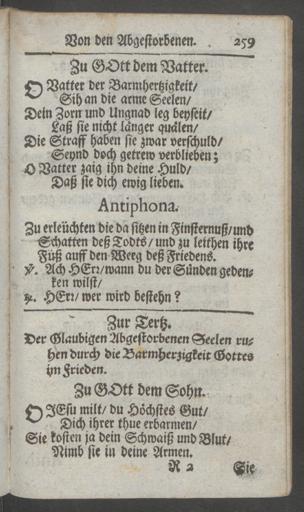 Von den Abgestorbenen. 259
Zu GOtt dem Vatter.
O Vatter der Barmhertzigkeit/
Sih an die arme Seelen/
Dein Zorn und Ungnad leg beyseit/
Laß sie nicht länger quälen/
Die Straff haben sie zwar verschuld/
Seynd doch getrew verblieben;
O Vatter zaig ihn deine Huld/
Daß sie dich ewig lieben.
Antiphona.
Zu erleüchten die da sitzen in Finsternuß/und
Schatten deß Todts/ und zu leithen ihre
Füß auff den Weeg deß Friedens.
℣. Ach HErr/wann du der Sünden geden-
ken wilst/
℟. HErr/ wer wird bestehn?
Zur Tertz.
Der Glaubigen Abgestorbenen Seelen ru-
hen durch die Barmherzigkeit Gottes
im Frieden.
Zu GOtt dem Sohn.
O JEsu milt/ du Höchstes Gut/
Dich ihrer thue erbarmen/
Sie kosten ja dein Schwaiß und Blut/
Nimb sie in deine Armen.
R 2 Sie